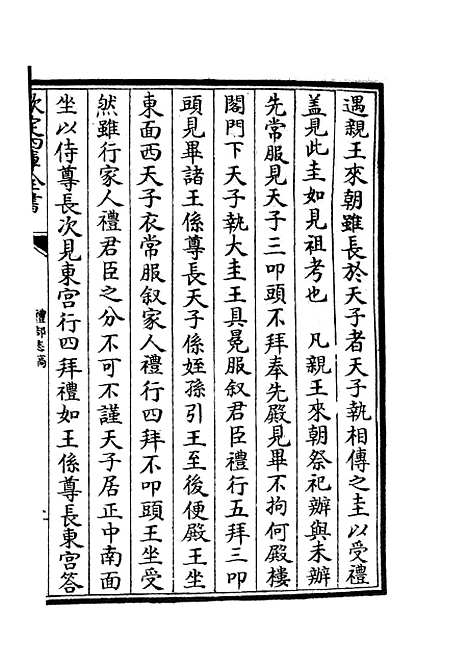 遇親王來朝雖長於天子者天子執相傳之圭以受禮
蓋見此圭如見祖考也　凡親王來朝祭祀辦與未辦
先常服見天子三叩頭不拜奉先殿見畢不拘何殿樓
閣門下天子執大圭王具冕服叙君臣禮行五拜三叩
頭見畢諸王係尊長天子係姪孫引王至後便殿王坐
東面西天子衣常服叙家人禮行四拜不叩頭王坐受
然雖行家人禮君臣之分不可不謹天子居正中南面
坐以侍尊長次見東宫行四拜禮如王係尊長東宫答
欽定四庫全書
禮部志稿